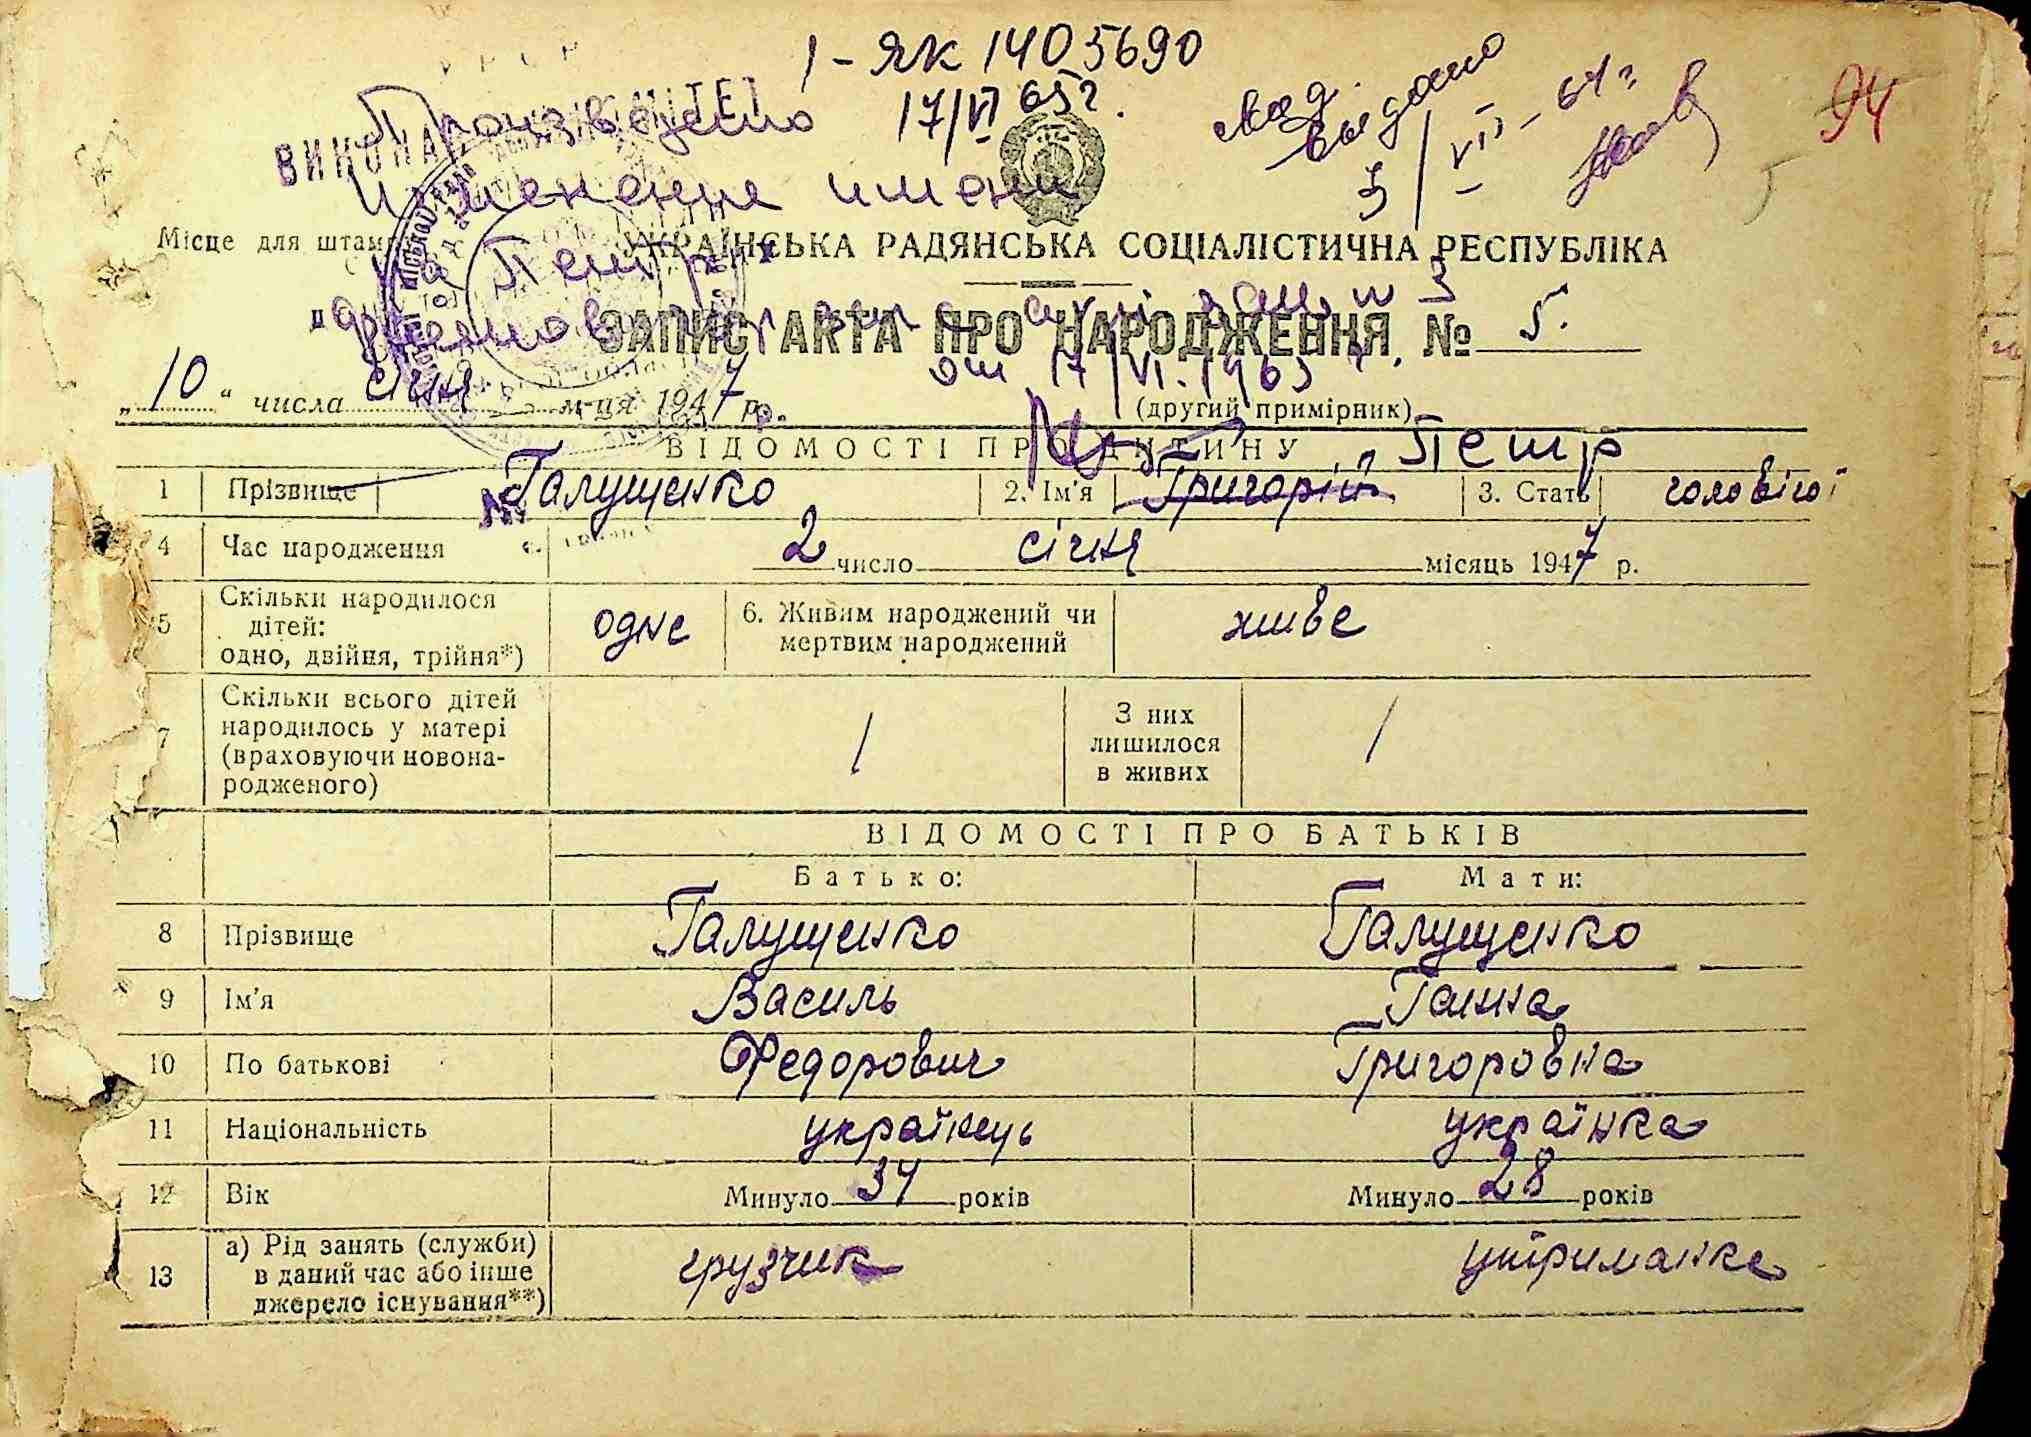 1 - ЯК 1405690
17/VI 65 г.
94
Произведено
изменение имени
ВИКОНА
Місце для штам
УКРАЇНСЬКА РАДЯНСЬКА СОЦІАЛІСТИЧНА РЕСПУБЛІКА
ЗАПИС АКТА ПРО НАРОДЖЕННЯ № 5.
от 17/VI. 1965
„10“ числа січня м-ця 1947 р.
(другий примірник)
ВІДОМОСТІ ПРО ДИТИНУ
Петр
1 Прізвище Галущенко 2. Ім'я Григорій 3. Стать чоловічої
4 Час народження 2 число січня місяць 1947 р.
5 Скільки народилося дітей: одно, двійня, трійня*) одне 6. Живим народжений чи мертвим народжений живе
7 Скільки всього дітей народилось у матері (враховуючи новонародженого) 1 З них лишилося в живих 1
ВІДОМОСТІ ПРО БАТЬКІВ
Батько: Мати:
8 Прізвище Галущенко Галущенко
9 Ім'я Василь Ганна
10 По батькові Федорович Григоровна
11 Національність українець українка
12 Вік Минуло 34 років Минуло 28 років
13 а) Рід занять (служби) в даний час або інше джерело існування**) грузчик утриманка